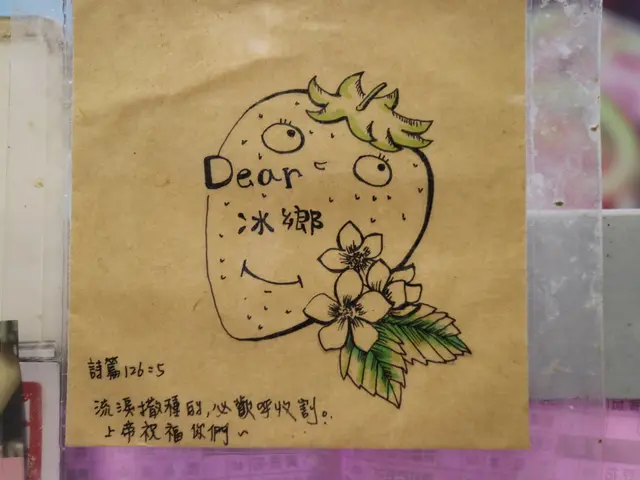 Dear
冰鄉
詩篇126:5
流淚撒種的,必歡呼收割。
上帝祝福你們~